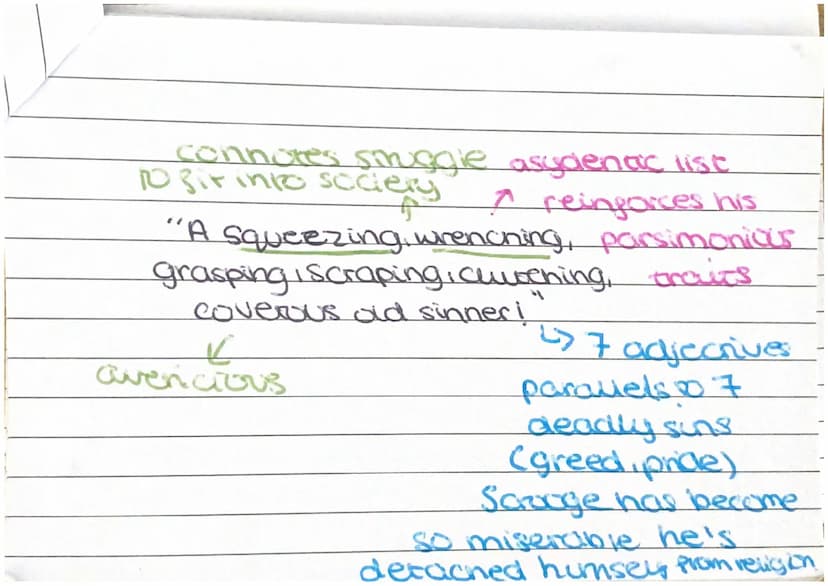 connotes struggle asydenac list
to fit into society
reinforces his
"A squeezing, wrenching, parsimonius
grasping, scraping, clutching, traits
coverous old sinner!"
7 adjectives
avericious
parallels to 7
deadly sins
(greed, pride)
Scrooge has become
so miserable he's
detached humself from religion